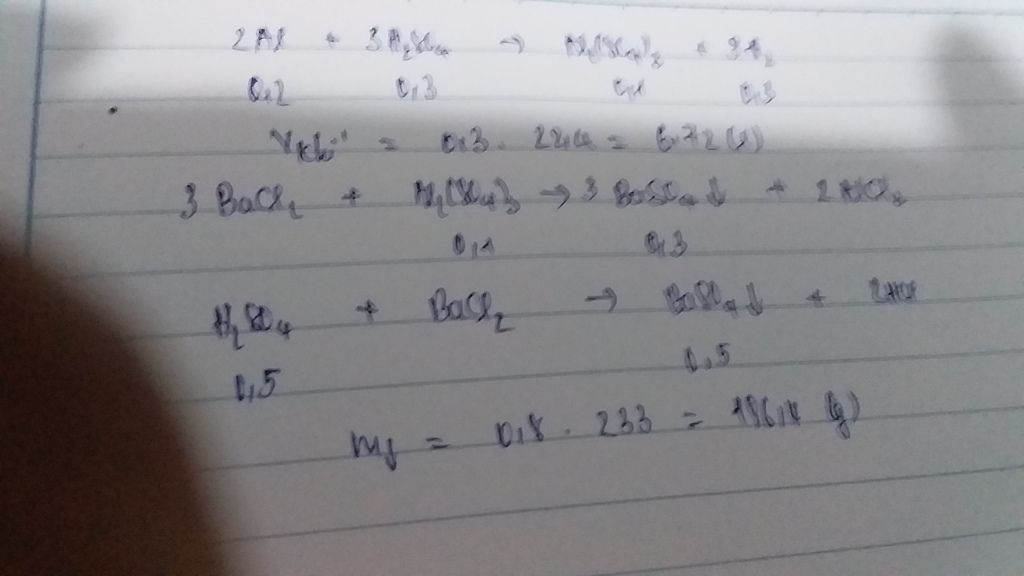 2Al + 3H₂SO₄ → Al₂(SO₄)₃ + 3H₂
0,2 0,3 0,1 0,3
= 0,3 . 22,4 = 6,72 (l)
3 BaCl₂ + Al₂(SO₄)₃ → 3 BaSO₄↓ + 2AlCl₃
0,1 0,3
H₂SO₄ + BaCl₂ → BaSO₄↓ + 2HCl
0,5 0,5
m↓ = 0,8 . 233 = 186,4 (g)